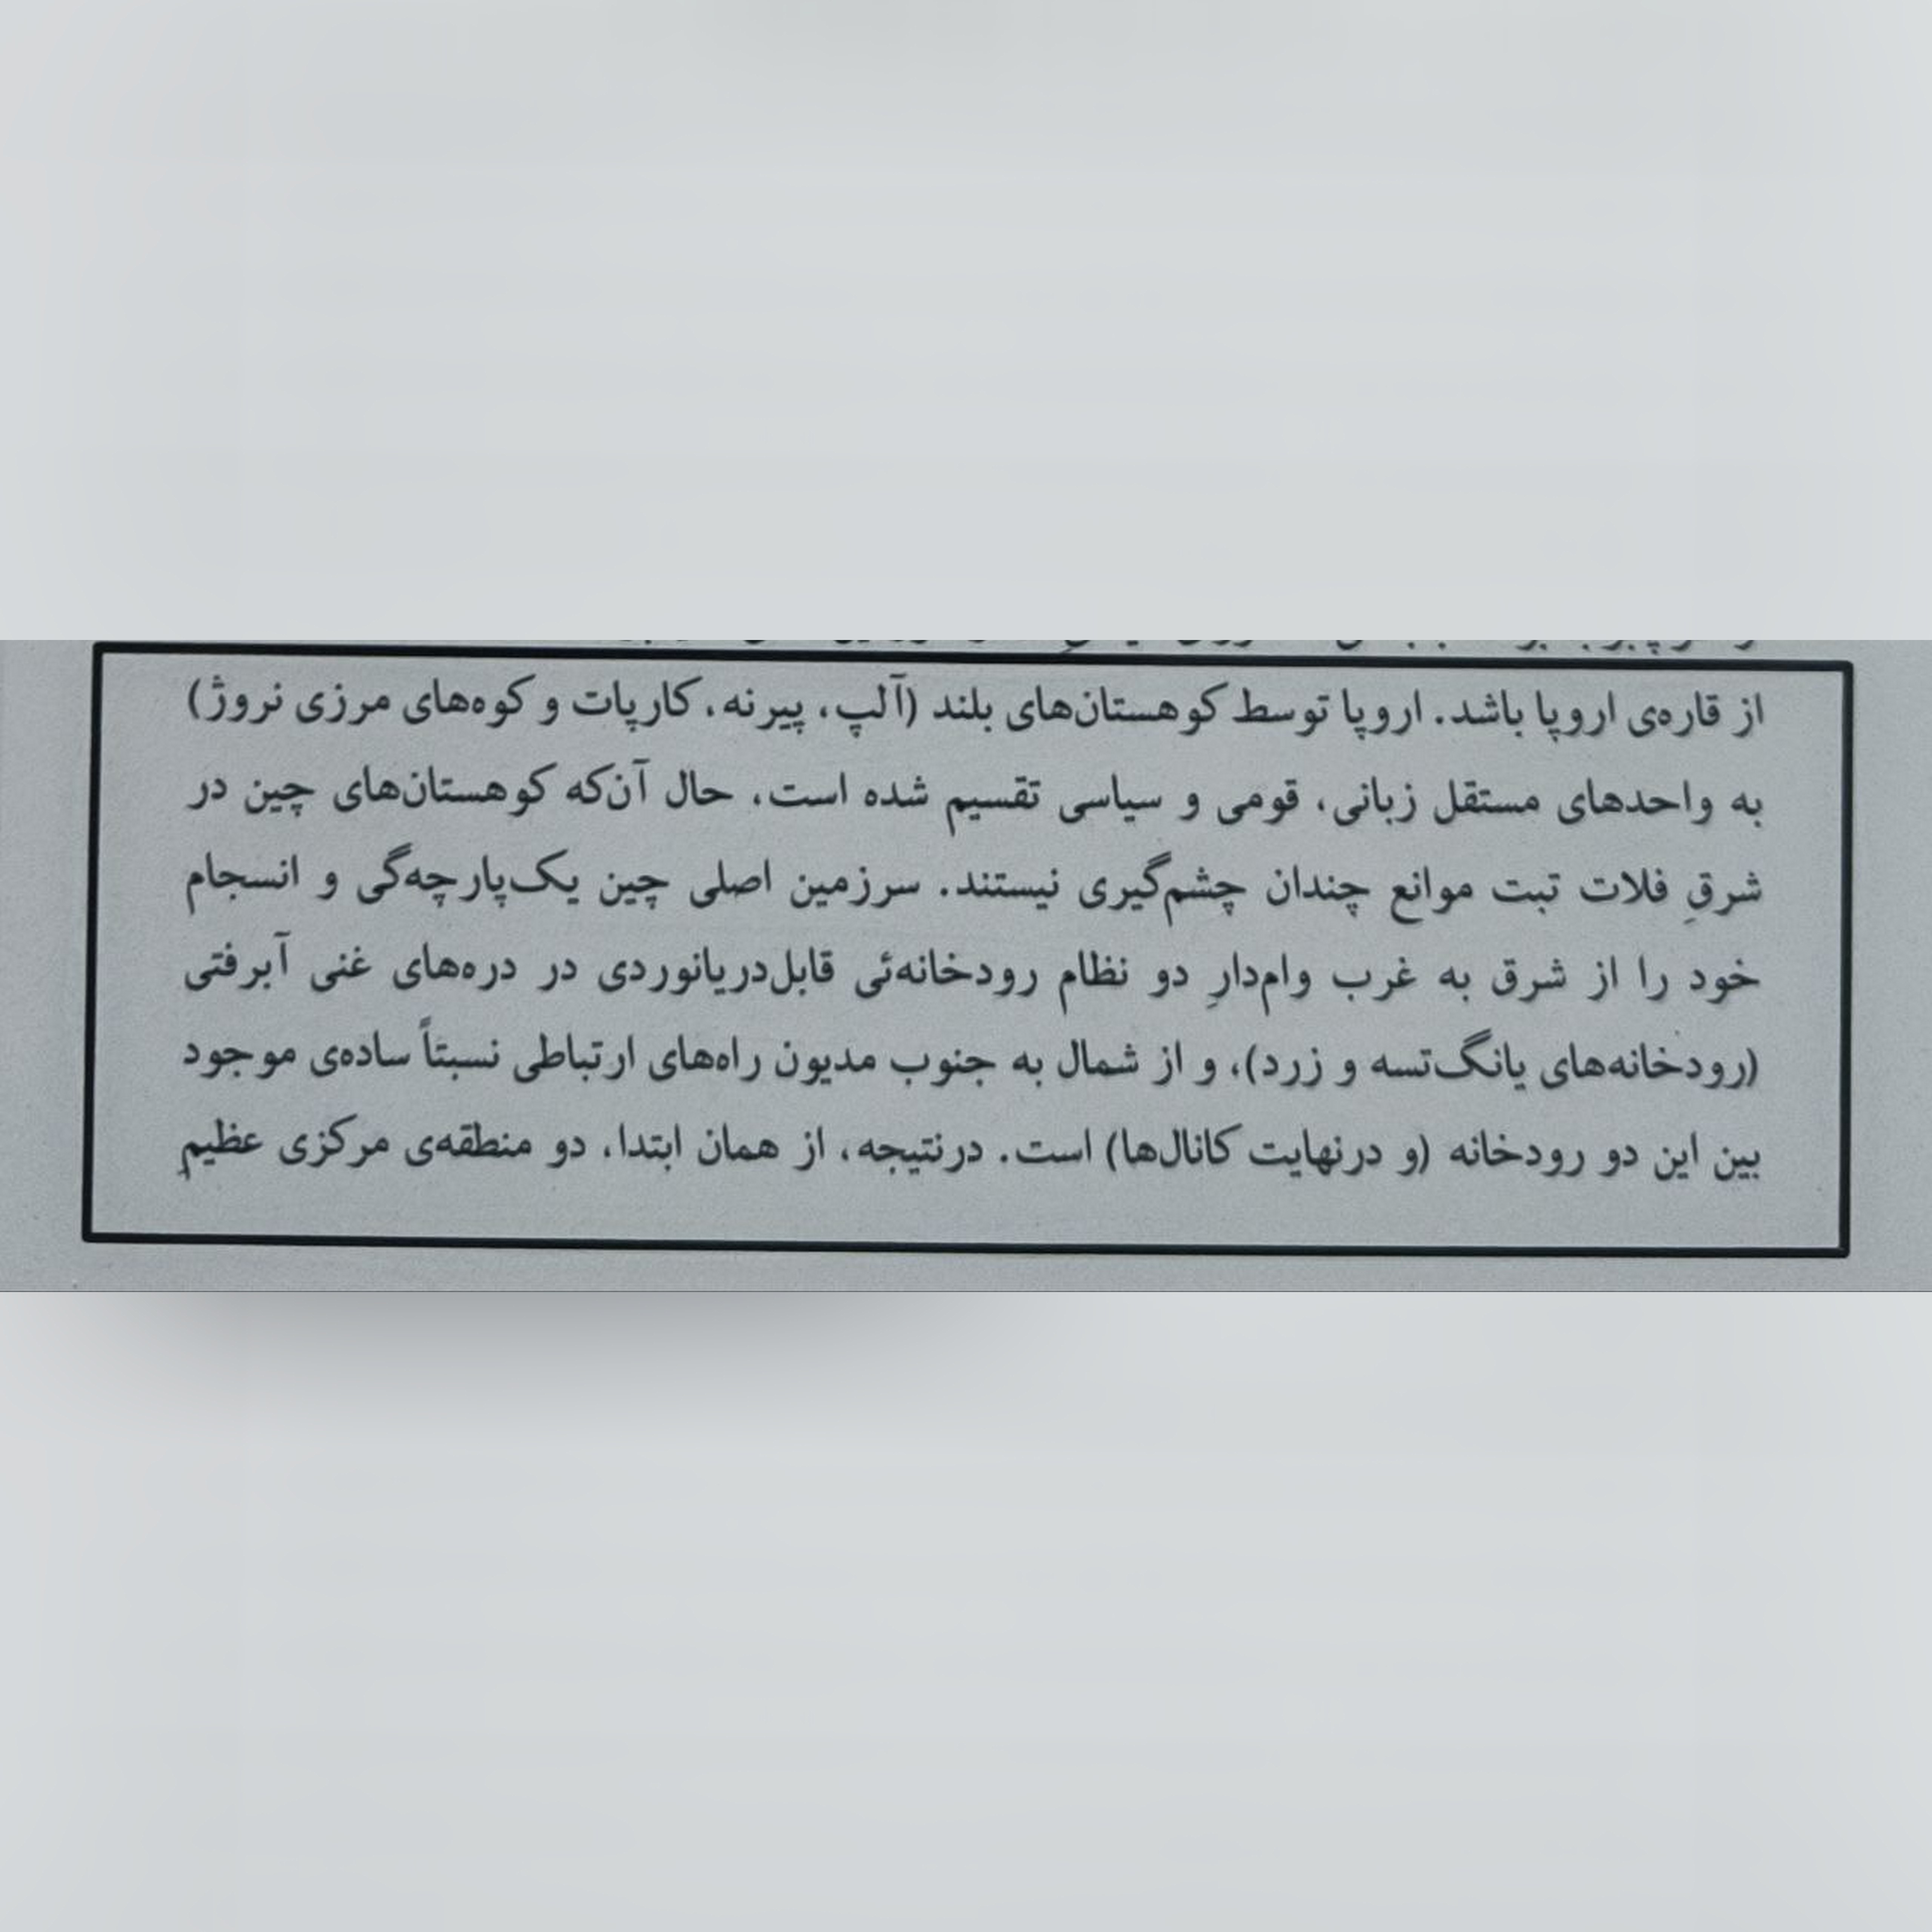 از قاره‌ی اروپا باشد. اروپا توسط کوهستان‌های بلند (آلپ، پیرنه، کارپات و کوه‌های مرزی نروژ)
به واحدهای مستقل زبانی، قومی و سیاسی تقسیم شده است، حال آن‌که کوهستان‌های چین در
شرقِ فلات تبت موانع چندان چشم‌گیری نیستند. سرزمین اصلی چین یک‌پارچه‌گی و انسجام
خود را از شرق به غرب وام‌دارِ دو نظام رودخانه‌ئی قابل‌دریانوردی در دره‌های غنی آبرفتی
(رودخانه‌های یانگ‌تسه و زرد)، و از شمال به جنوب مدیون راه‌های ارتباطی نسبتاً ساده‌ی موجود
بین این دو رودخانه (و درنهایت کانال‌ها) است. درنتیجه، از همان ابتدا، دو منطقه‌ی مرکزی عظیم